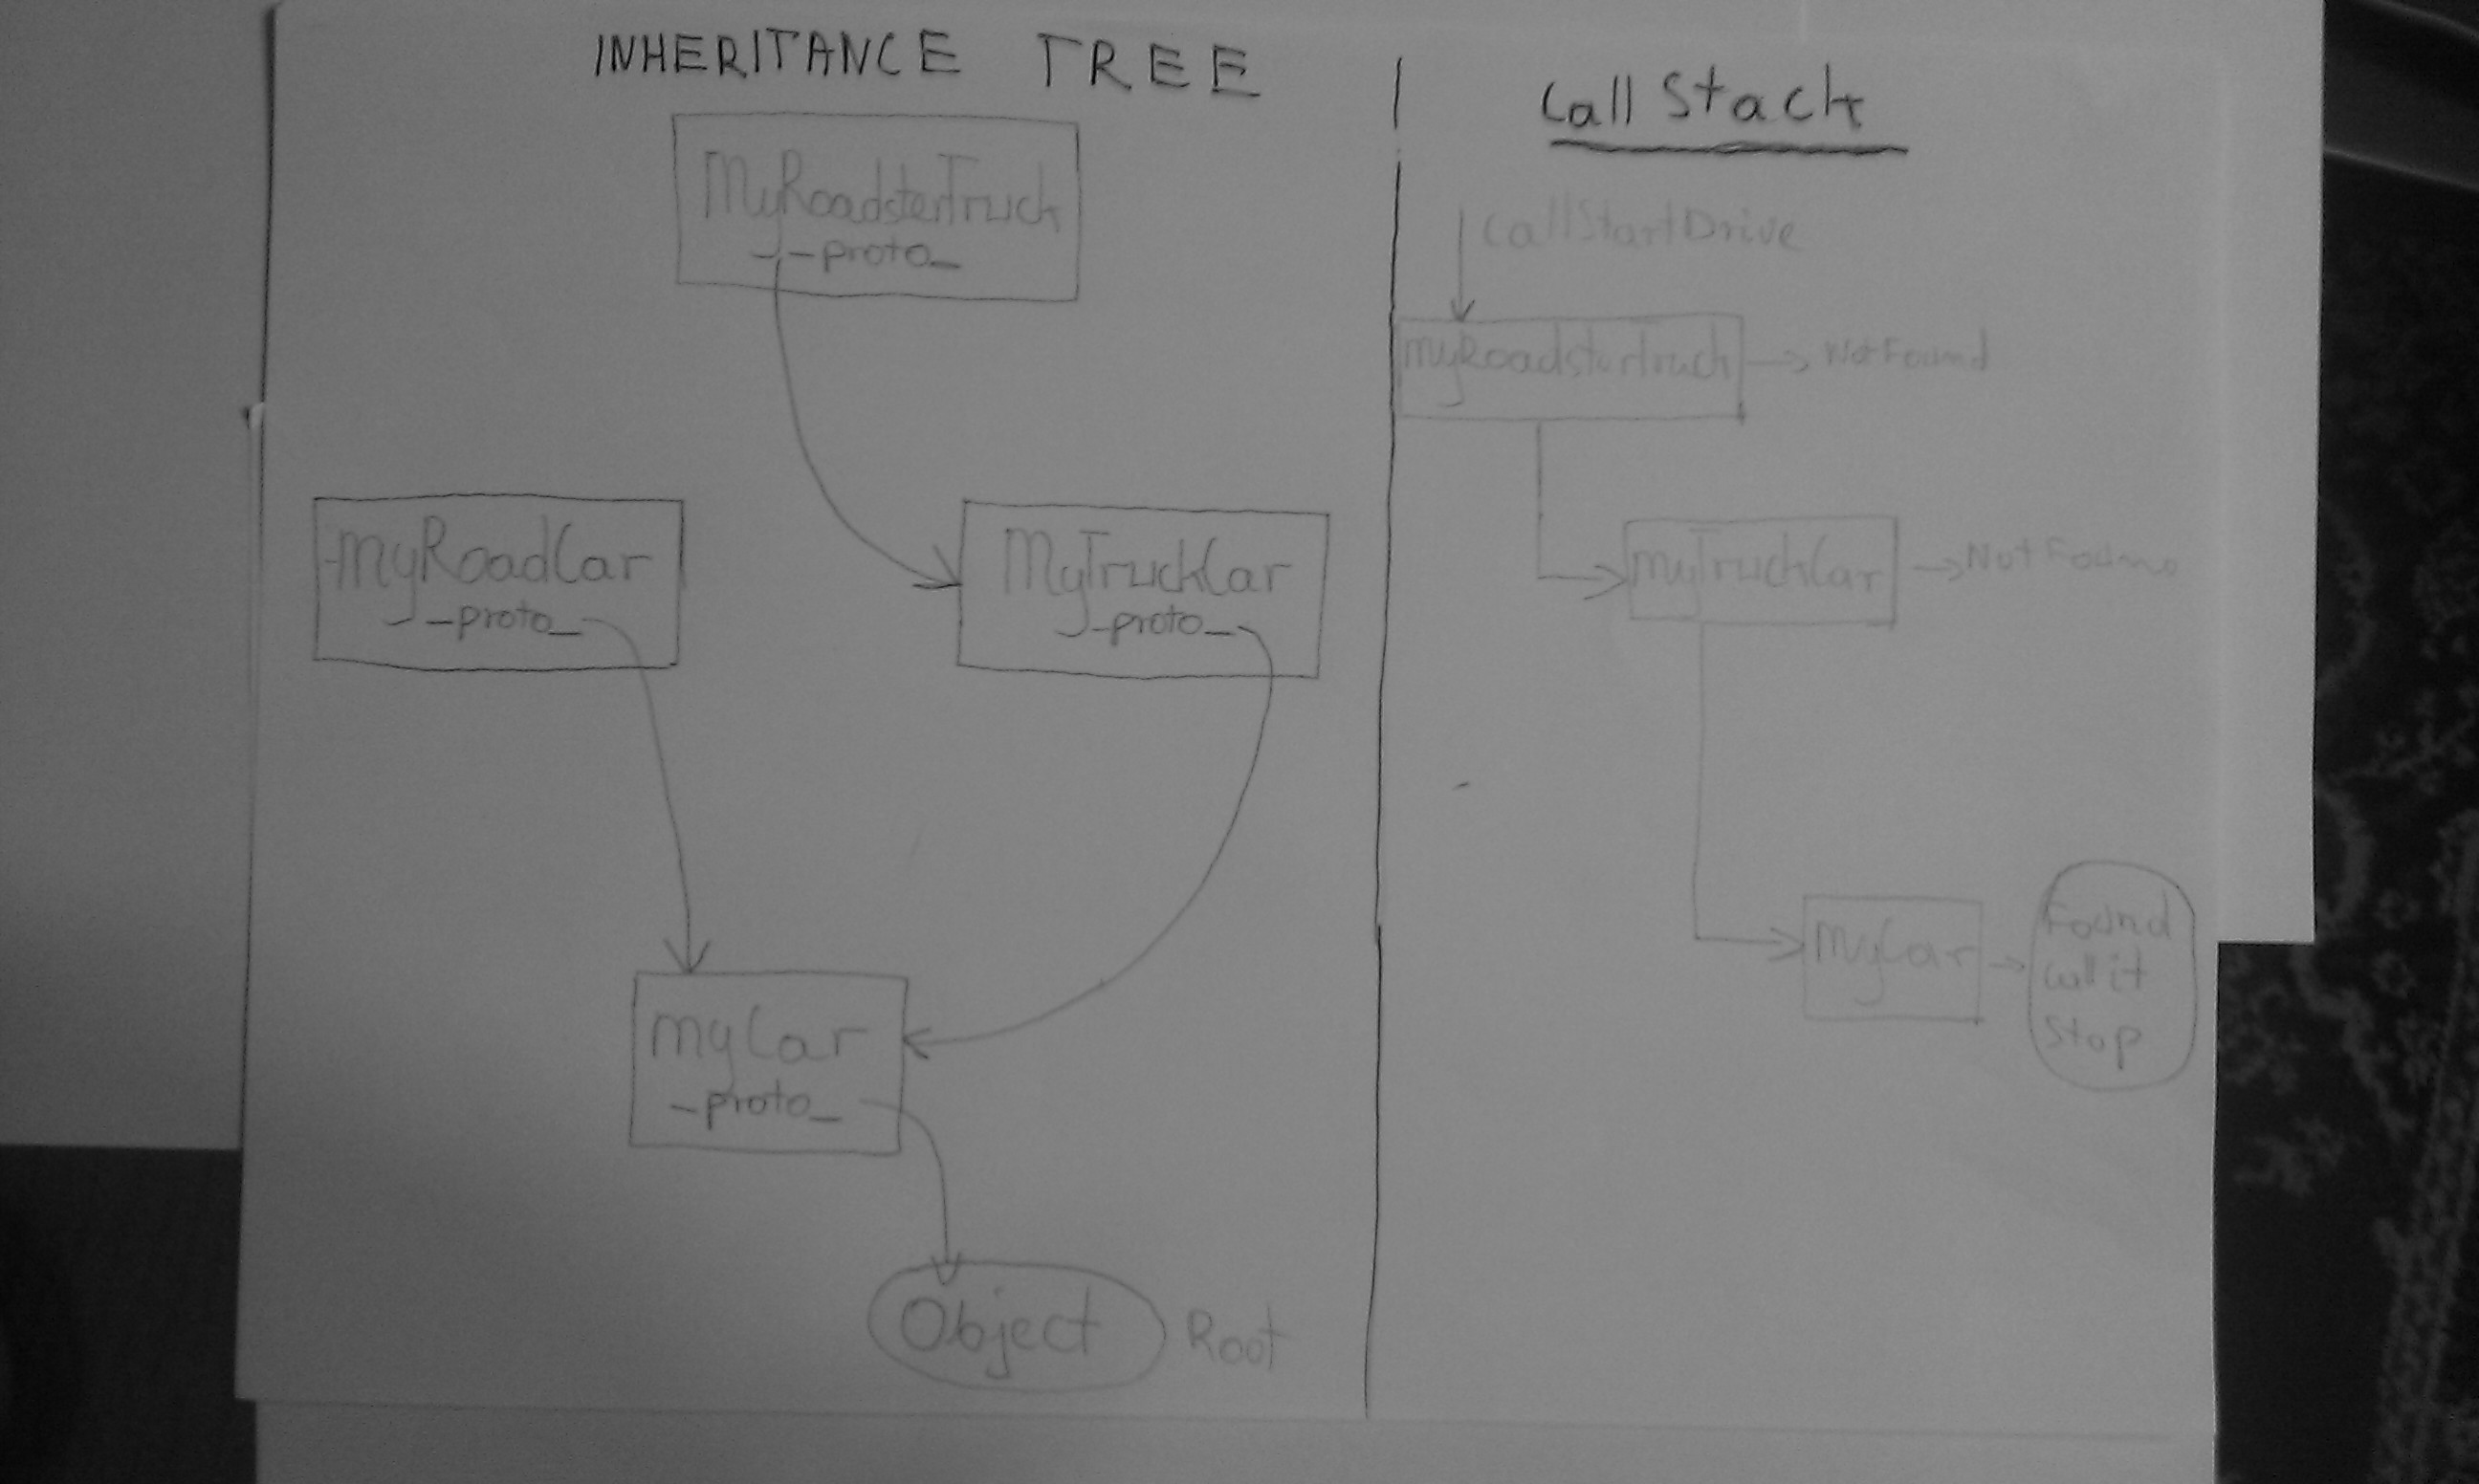 INHERITANCE TREE
MyRoadsterTruck
__proto_
myRoadCar
_proto_
MyTruckCar
_proto_
myCar
_proto_
Object
Root
Call Stack
CallStartDrive
myRoadstertruck
Not Found
myTruckCar
Not Found
MyCar
Found
call it
Stop